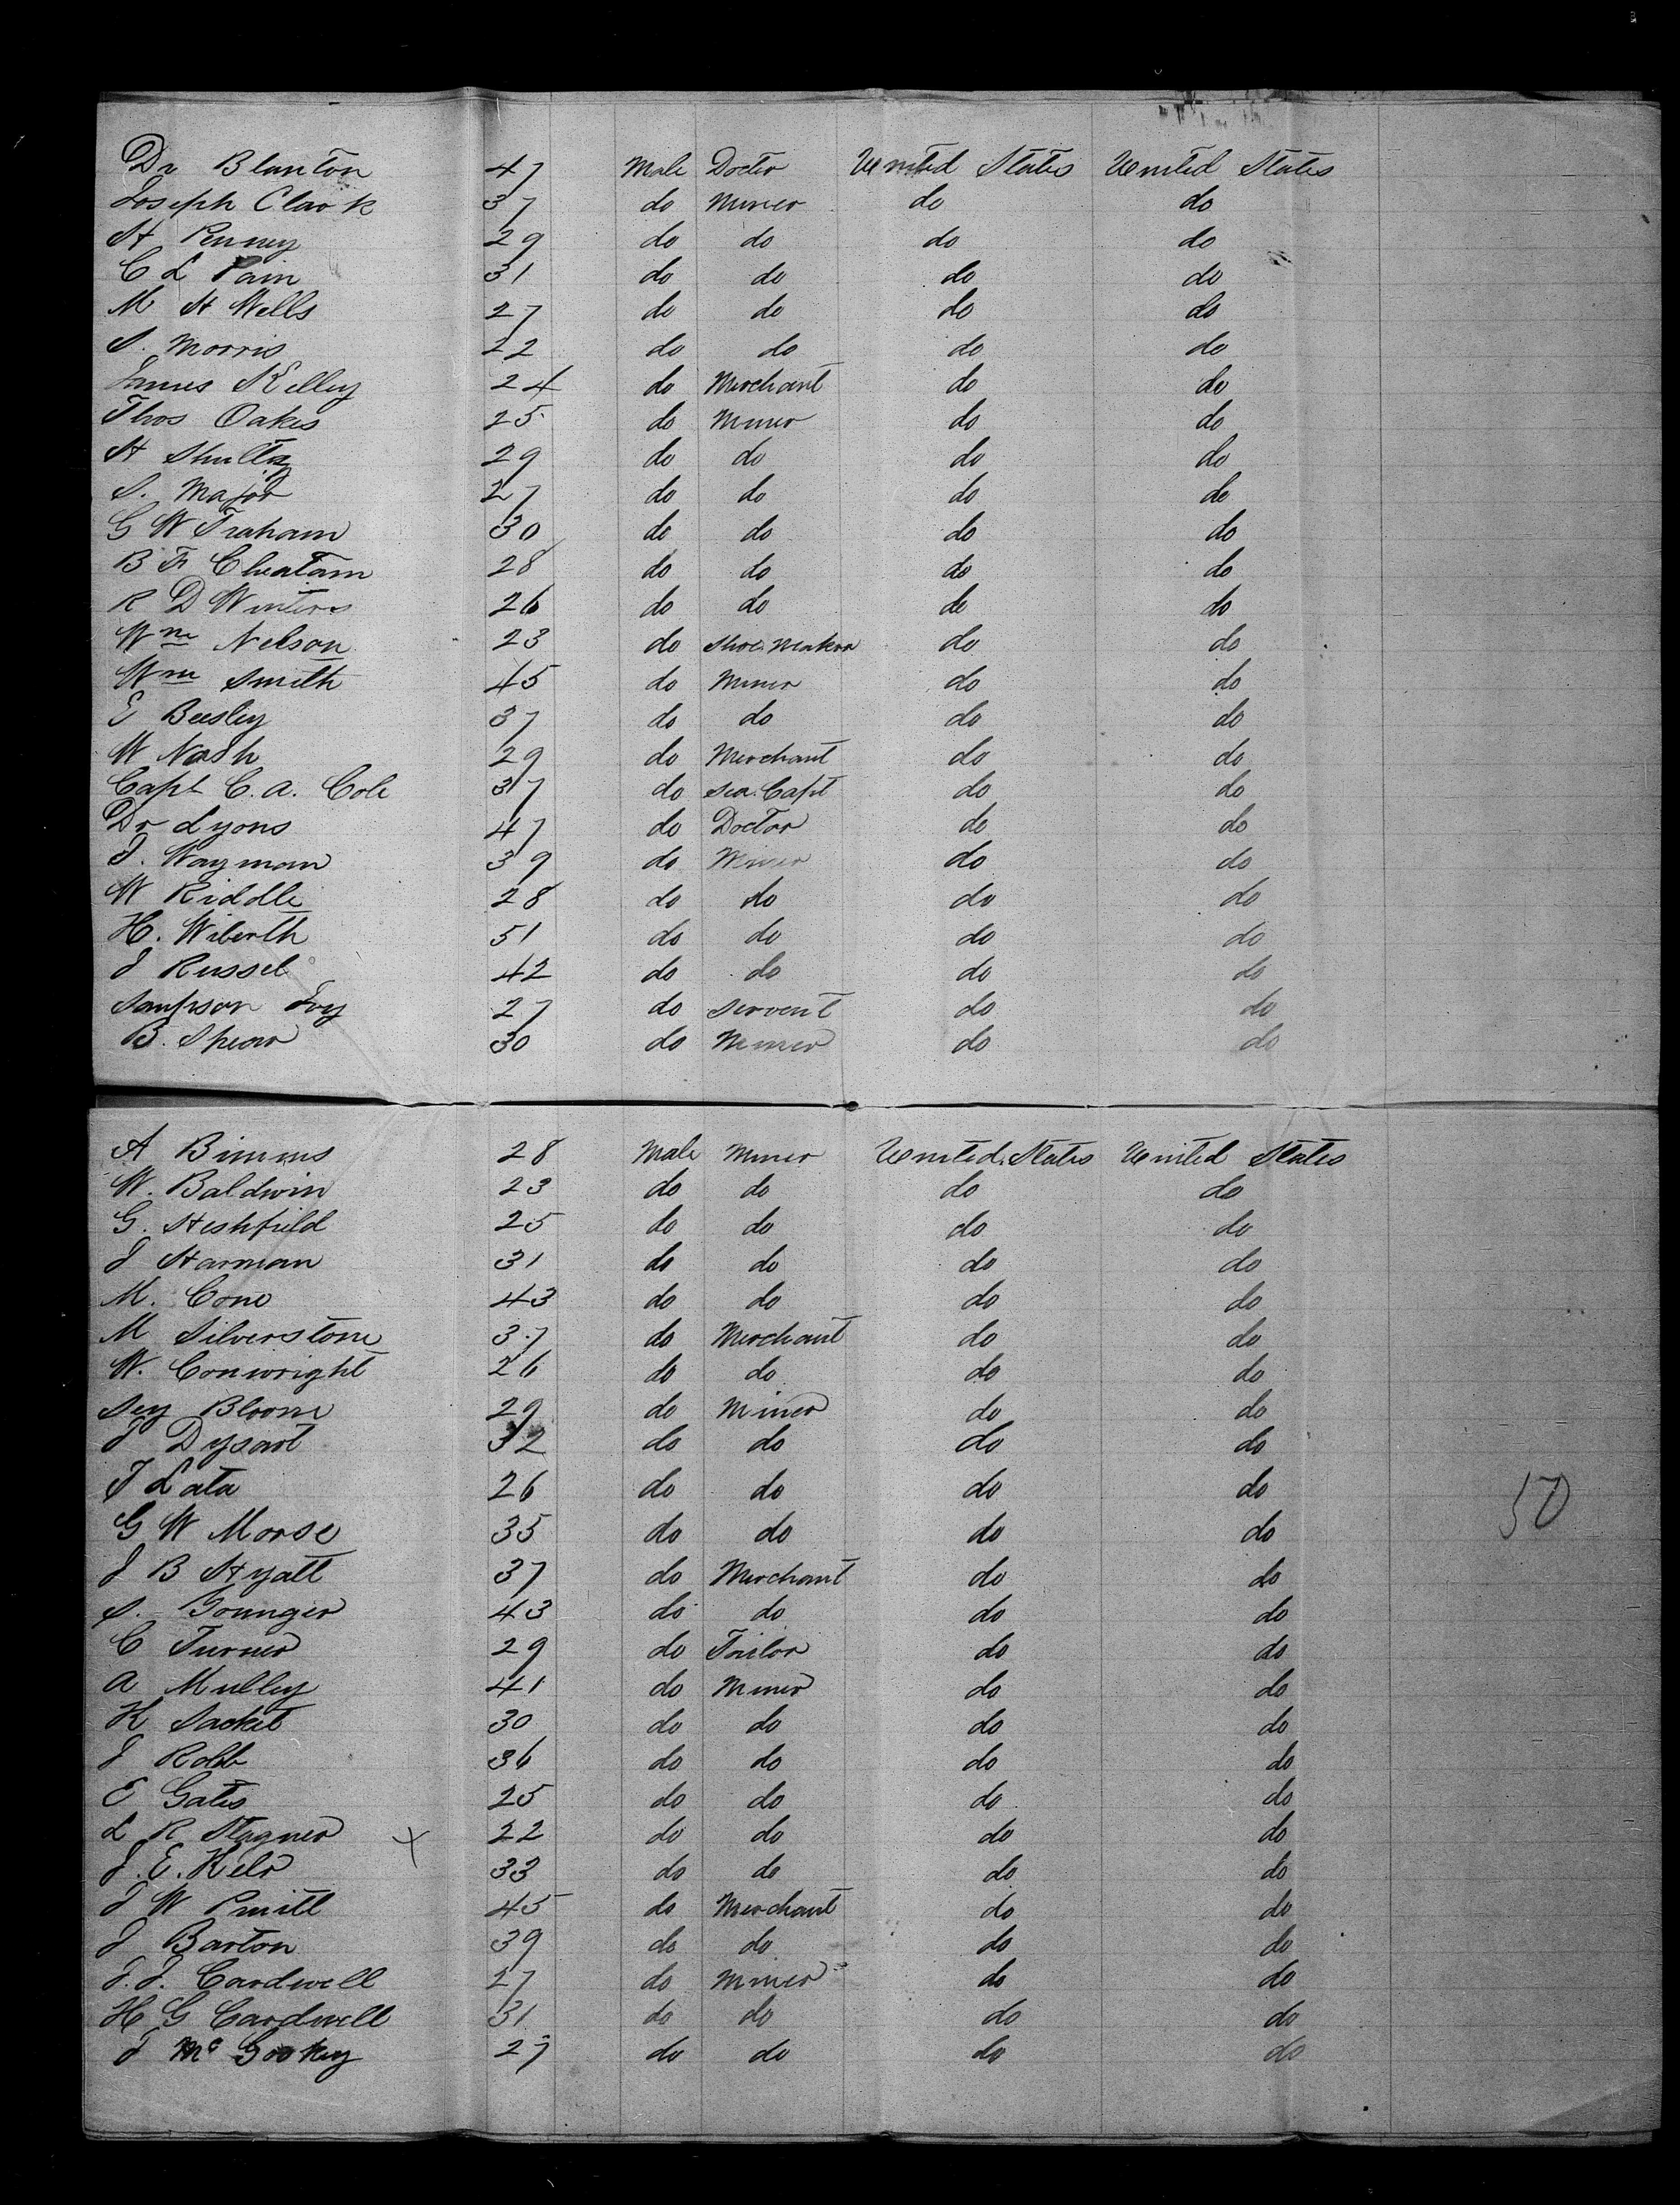 Dr Blanton 47 Male Doctor United States United States
Joseph Clark 37 do Miner do do
H Penney 29 do do do do
C L Pain 31 do do do do
M H Wells 27 do do do do
S. Morris 22 do do do do
James Kelley 24 do Merchant do do
Thos Oakes 25 do Miner do do
H Shultz 29 do do do do
S. Major 27 do do do do
G W Traham 30 do do do do
B F Cheatam 28 do do do do
R D Winters 26 do do do do
Wm Nelson 23 do Shoe Maker do do
Wm Smith 45 do Miner do do
E Beesley 37 do do do do
W Nash 29 do Merchant do do
Capt C. A. Cole 37 do Sea Capt do do
Dr Lyons 47 do Doctor do do
J. Wayman 39 do Miner do do
W Riddle 28 do do do do
H. Wiberth 51 do do do do
J Russel 42 do do do do
Sampson Ivy 27 do Servent do do
B. Spear 30 do Miner do do
A Bimms 28 Male Miner United States United States
W. Baldwin 23 do do do do
G. Heshfield 25 do do do do
J Harman 31 do do do do
M. Cone 43 do do do do
M Silverstone 37 do Merchant do do
W. Conwright 26 do do do do
Sey Bloome 29 do Miner do do
J Dysart 32 do do do do
J Lata 26 do do do do
G W Morse 35 do do do do
50
J B Hyatt 37 do Merchant do do
S. Younger 43 do do do do
C Turner 29 do Tailor do do
A Mulley 41 do Miner do do
H Sacket 30 do do do do
J Robb 36 do do do do
E Gates 25 do do do do
L R Stagner x 22 do do do do
J. E. Kelr 33 do do do do
J W Pruitt 45 do Merchant do do
J Barton 39 do do do do
J. J. Cardwell 27 do Miner do do
H G Cardwell 31 do do do do
J Mc 27 do do do do